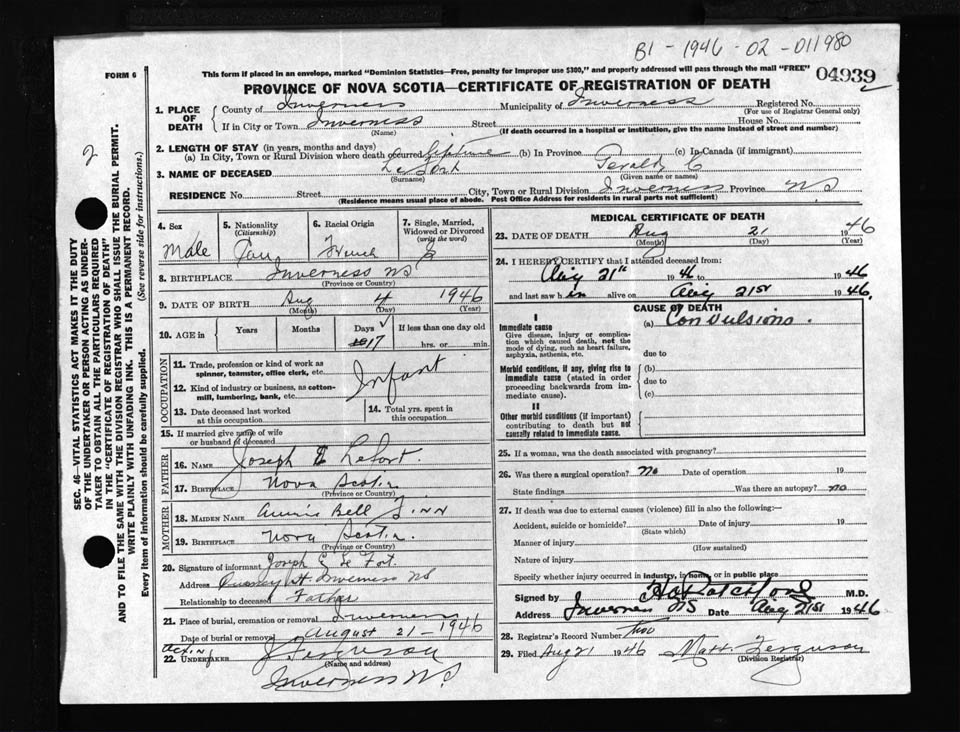 B1 - 1946 - 02 - 011980
FORM 6
This form if placed in an envelope, marked "Dominion Statistics—Free, penalty for improper use $300," and properly addressed will pass through the mail "FREE"
04939
2
PROVINCE OF NOVA SCOTIA—CERTIFICATE OF REGISTRATION OF DEATH
1. PLACE OF DEATH
County of Inverness Municipality of Inverness Registered No.
(For use of Registrar General only)
If in City or Town Inverness Street House No.
(Name) (If death occurred in a hospital or institution, give the name instead of street and number)
2. LENGTH OF STAY (in years, months and days)
(a) In City, Town or Rural Division where death occurred Lifetime (b) In Province (c) In Canada (if immigrant)
3. NAME OF DECEASED Le Fort Gerald C
(Surname) (Given name or names)
RESIDENCE No. Street City, Town or Rural Division Inverness Province NS
(Residence means usual place of abode. Post Office Address for residents in rural parts not sufficient)
4. Sex
Male
5. Nationality
(Citizenship)
Can
6. Racial Origin
French
7. Single, Married, Widowed or Divorced
(write the word)
S
8. BIRTHPLACE Inverness NS
(Province or Country)
9. DATE OF BIRTH Aug 4 1946
(Month) (Day) (Year)
10. AGE in Years Months Days If less than one day old
17 hrs. or min.
OCCUPATION
11. Trade, profession or kind of work as spinner, teamster, office clerk, etc.
Infant
12. Kind of industry or business, as cotton-mill, lumbering, bank, etc.
13. Date deceased last worked at this occupation
14. Total yrs. spent in this occupation
15. If married give name of wife or husband of deceased
FATHER
16. NAME Joseph E Lefort.
17. BIRTHPLACE Nova Scotia
(Province or Country)
MOTHER
18. MAIDEN NAME Annie Bell Finn
19. BIRTHPLACE Nova Scotia.
(Province or Country)
20. Signature of informant Joseph E Le Fort.
Address St. Inverness NS
Relationship to deceased Father
21. Place of burial, cremation or removal Inverness
Date of burial or removal August 21 - 1946
22. UNDERTAKER J Ferguson
(Name and address)
Inverness NS
MEDICAL CERTIFICATE OF DEATH
23. DATE OF DEATH Aug 21 1946
(Month) (Day) (Year)
24. I HEREBY CERTIFY that I attended deceased from:
Aug 21st 46 to 1946
and last saw him alive on Aug 21st 1946.
CAUSE OF DEATH
I
Immediate cause
Give disease, injury or complication which caused death, not the mode of dying, such as heart failure, asphyxia, asthenia, etc.
(a) Convulsions.
due to
Morbid conditions, if any, giving rise to immediate cause (stated in order proceeding backwards from immediate cause).
(b)
due to
(c)
II
Other morbid conditions (if important) contributing to death but not causally related to immediate cause.
25. If a woman, was the death associated with pregnancy?
26. Was there a surgical operation? No Date of operation 19
State findings Was there an autopsy? no
27. If death was due to external causes (violence) fill in also the following:—
Accident, suicide or homicide? Date of injury 19
(State which)
Manner of injury
(How sustained)
Nature of injury
Specify whether injury occurred in industry, in home or in public place
Signed by M.D.
Address Inverness NS Date Aug 21st 1946
28. Registrar's Record Number two
29. Filed Aug 21 1946 Matt. Ferguson
(Division Registrar)
2
SEC. 46—VITAL STATISTICS ACT MAKES IT THE DUTY
OF THE UNDERTAKER OR PERSON ACTING AS UNDER-
TAKER TO OBTAIN ALL THE PARTICULARS REQUIRED
IN THE "CERTIFICATE OF REGISTRATION OF DEATH"
AND TO FILE THE SAME WITH THE DIVISION REGISTRAR WHO SHALL ISSUE THE BURIAL PERMIT.
WRITE PLAINLY WITH UNFADING INK. THIS IS A PERMANENT RECORD.
Every item of information should be carefully supplied. (See reverse side for instructions.)